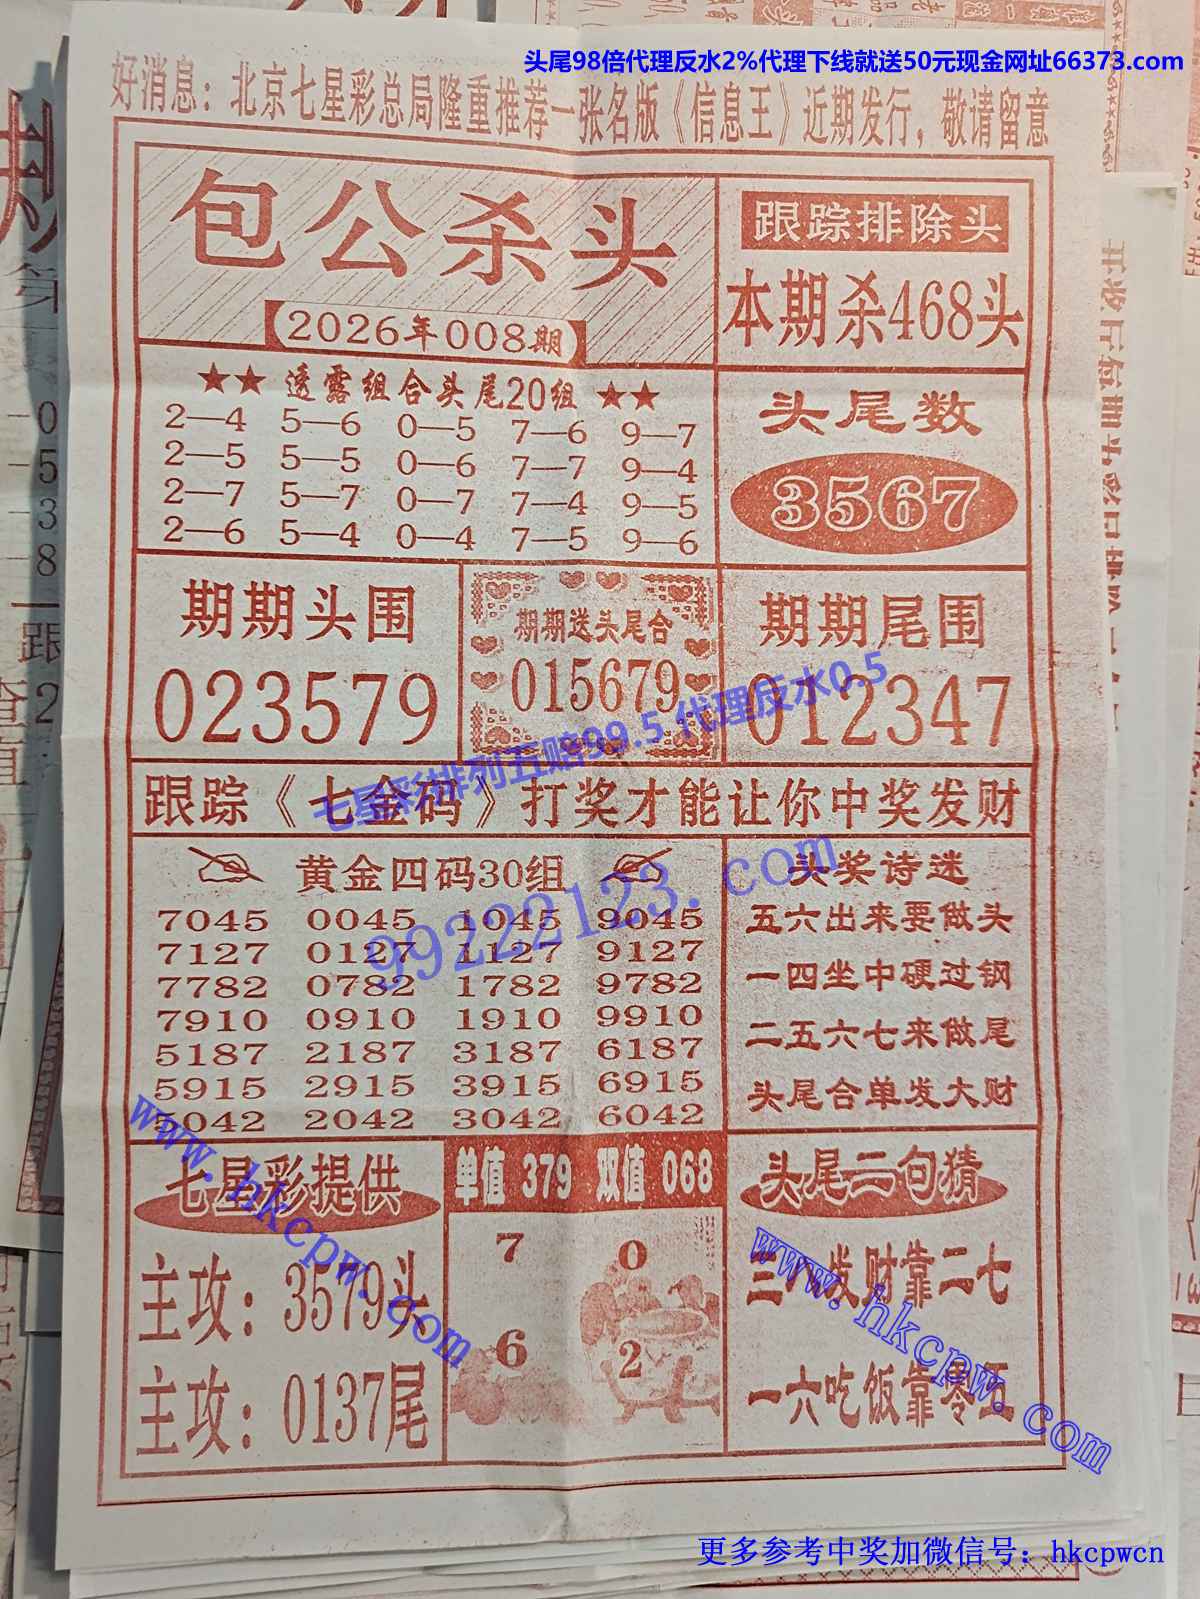 头尾98倍代理反水2%代理下线就送50元现金网址66373.com
好消息：北京七星彩总局隆重推荐一张名版《信息王》近期发行，敬请留意
包公杀头
【2026年008期】
跟踪排除头
本期杀468头
★★ 透露组合头尾20组 ★★
2—4 5—6 0—5 7—6 9—7
2—5 5—5 0—6 7—7 9—4
2—7 5—7 0—7 7—4 9—5
2—6 5—4 0—4 7—5 9—6
头尾数
3567
期期头围
023579
期期送头尾合
015679
期期尾围
012347
七星彩排列五赔99.5 代理反水0.5
跟踪《七金码》打奖才能让你中奖发财
黄金四码30组
7045 0045 1045 9045
7127 0127 1127 9127
7782 0782 1782 9782
7910 0910 1910 9910
5187 2187 3187 6187
5915 2915 3915 6915
5042 2042 3042 6042
99222123.com
头奖诗迷
五六出来要做头
一四坐中硬过钢
二五六七来做尾
头尾合单发大财
www.hkcpw.com
七星彩提供
主攻：3579头
主攻：0137尾
单值 379 双值 068
7 0
6 2
头尾二句猜
三八发财靠二七
一六吃饭靠零五
www.hkcpw.com
更多参考中奖加微信号：hkcpwcn